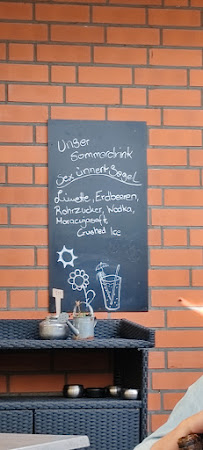 Unser
Sommerdrink
Sex ünnert Segel
Limette, Erdbeeren,
Rohrzucker, Wodka,
Maracujasaft
Crushed Ice